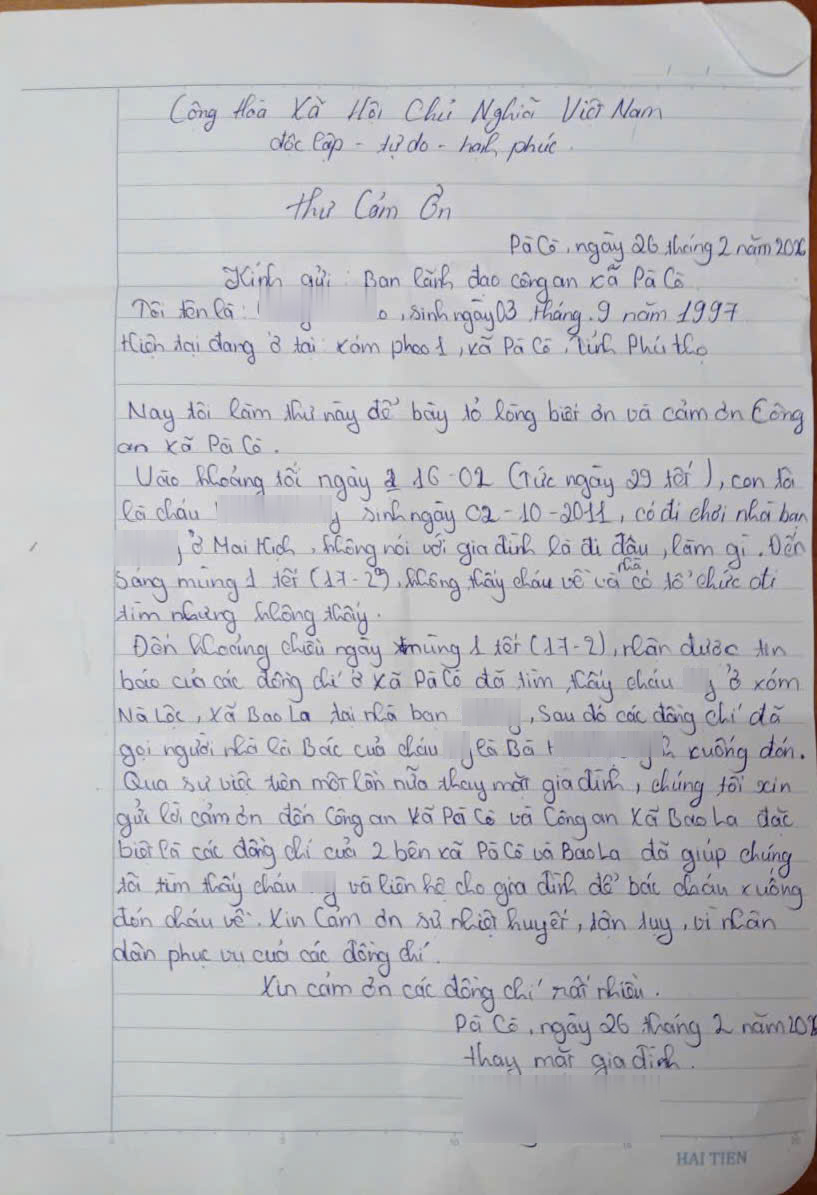 Công Hoà Xã Hội Chủ Nghĩa Việt Nam
độc lập - tự do - hạnh phúc.
thư Cảm Ơn
Pà Cò, ngày 26 tháng 2 năm 2026
Kính gửi: Ban lãnh đạo công an xã Pà Cò
Tôi tên là: , sinh ngày 03 tháng. 9 năm 1997
Hiện tại đang ở tại: xóm pheo 1, xã Pà Cò, tỉnh Phú thọ
Nay tôi làm thư này để bày tỏ lòng biết ơn và cảm ơn Công
an xã Pà Cò.
Vào khoảng tối ngày 16-02 (Tức ngày 29 tết), con tôi
là cháu sinh ngày 02-10-2011, có đi chơi nhà bạn
ở Mai Hịch, không nói với gia đình là đi đâu, làm gì. Đến
Sáng mùng 1 tết (17-2), không thấy cháu về và nhà có tổ chức đi
tìm nhưng không thấy.
Đến khoảng chiều ngày mùng 1 tết (17-2), nhận được tin
báo của các đồng chí ở xã Pà Cò đã tìm thấy cháu ở xóm
Nà Lộc, xã Bao La tại nhà bạn , Sau đó các đồng chí đã
gọi người nhà là Bác của cháu là Bà xuống đón.
Qua sự việc trên một lần nữa thay mặt gia đình, chúng tôi xin
gửi lời cảm ơn đến Công an xã Pà Cò và Công an xã Bao La đặc
biệt là các đồng chí của 2 bên xã Pà Cò và Bao La đã giúp chúng
tôi tìm thấy cháu và liên hệ cho gia đình để bác cháu xuống
đón cháu về. Xin Cảm ơn sự nhiệt huyết, tận tụy, vì nhân
dân phục vụ của các đồng chí.
Xin cảm ơn các đồng chí rất nhiều.
Pà Cò, ngày 26 tháng 2 năm 2026
thay mặt gia đình.
HAI TIEN